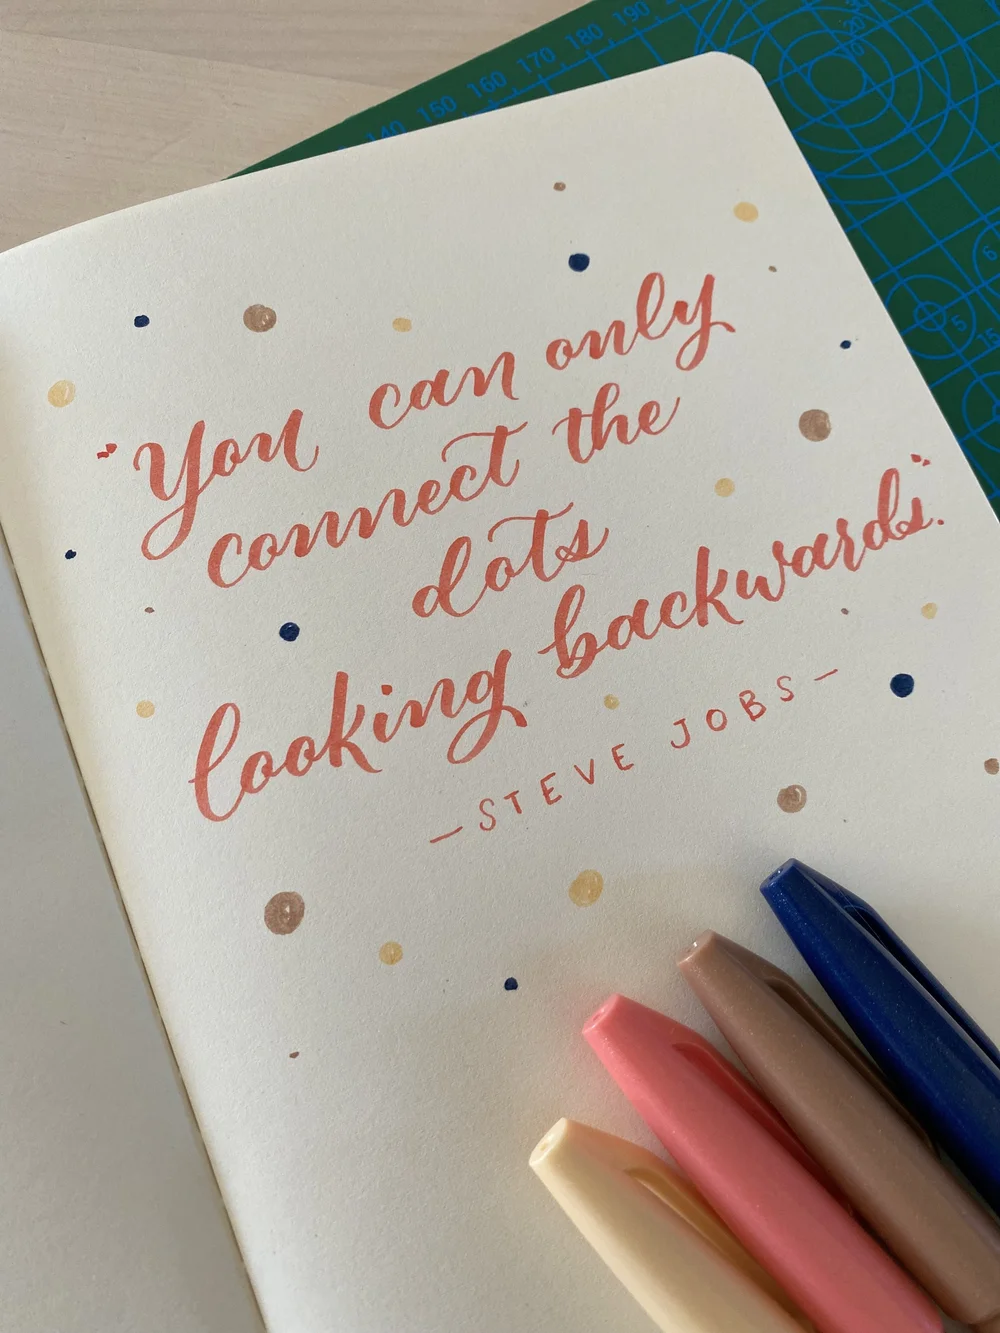 140 150 160 170 180 190
"You can only
connect the
dots
looking backwards."
— STEVE JOBS —
6
5